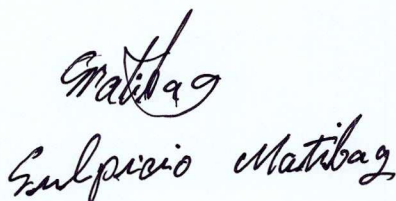 SMatibag
Sulpicio Matibag